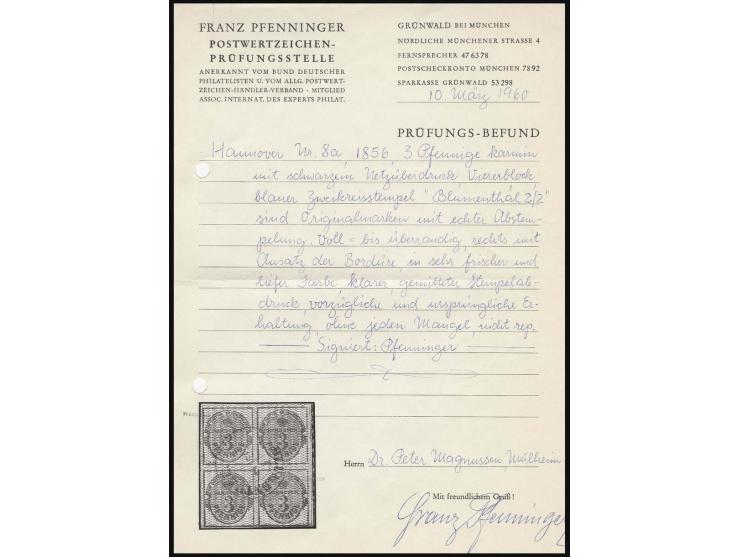 FRANZ PFENNINGER
POSTWERTZEICHEN-
PRÜFUNGSSTELLE
ANERKANNT VOM BUND DEUTSCHER
PHILATELISTEN U. VOM ALLG. POSTWERT-
ZEICHEN-HÄNDLER-VERBAND · MITGLIED
ASSOC. INTERNAT. DES EXPERTS PHILAT.
GRÜNWALD BEI MÜNCHEN
NÖRDLICHE MÜNCHENER STRASSE 4
FERNSPRECHER 47 63 78
POSTSCHECKKONTO MÜNCHEN 78 92
SPARKASSE GRÜNWALD 53 298
10. März 1960
PRÜFUNGS-BEFUND
Hannover Nr. 8a, 1856, 3 Pfennige karmin
mit schwarzem Netzüberdruck, Viererblock,
blauer Zweikreisstempel "Blumenthal 2/2"
sind Originalmarken mit echter Abstem-
pelung. Voll- bis überrandig, rechts mit
Ansatz der Bordüre, in sehr frischer und
tiefer Farbe, klarer, gemitteter Stempelab-
druck, vorzügliche und ursprüngliche Er-
haltung, ohne jeden Mangel, nicht rep.
Signiert: Pfenninger
3 3
PFENNIGE PFENNIGE
3 3
PFENNIGE PFENNIGE
Herrn Dr. Peter Magnussen, Mülheim
Mit freundlichem Gruß!
Franz Pfenninger